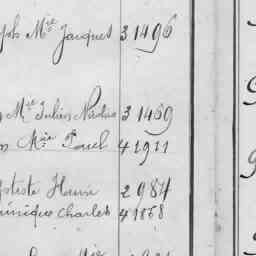 ph Mie Jacques 3 1496
Mie Julien Nicolas 3 1469
Mie Pouel 4 1911
ptiste Henri 2 984
minique Charles 4 1868